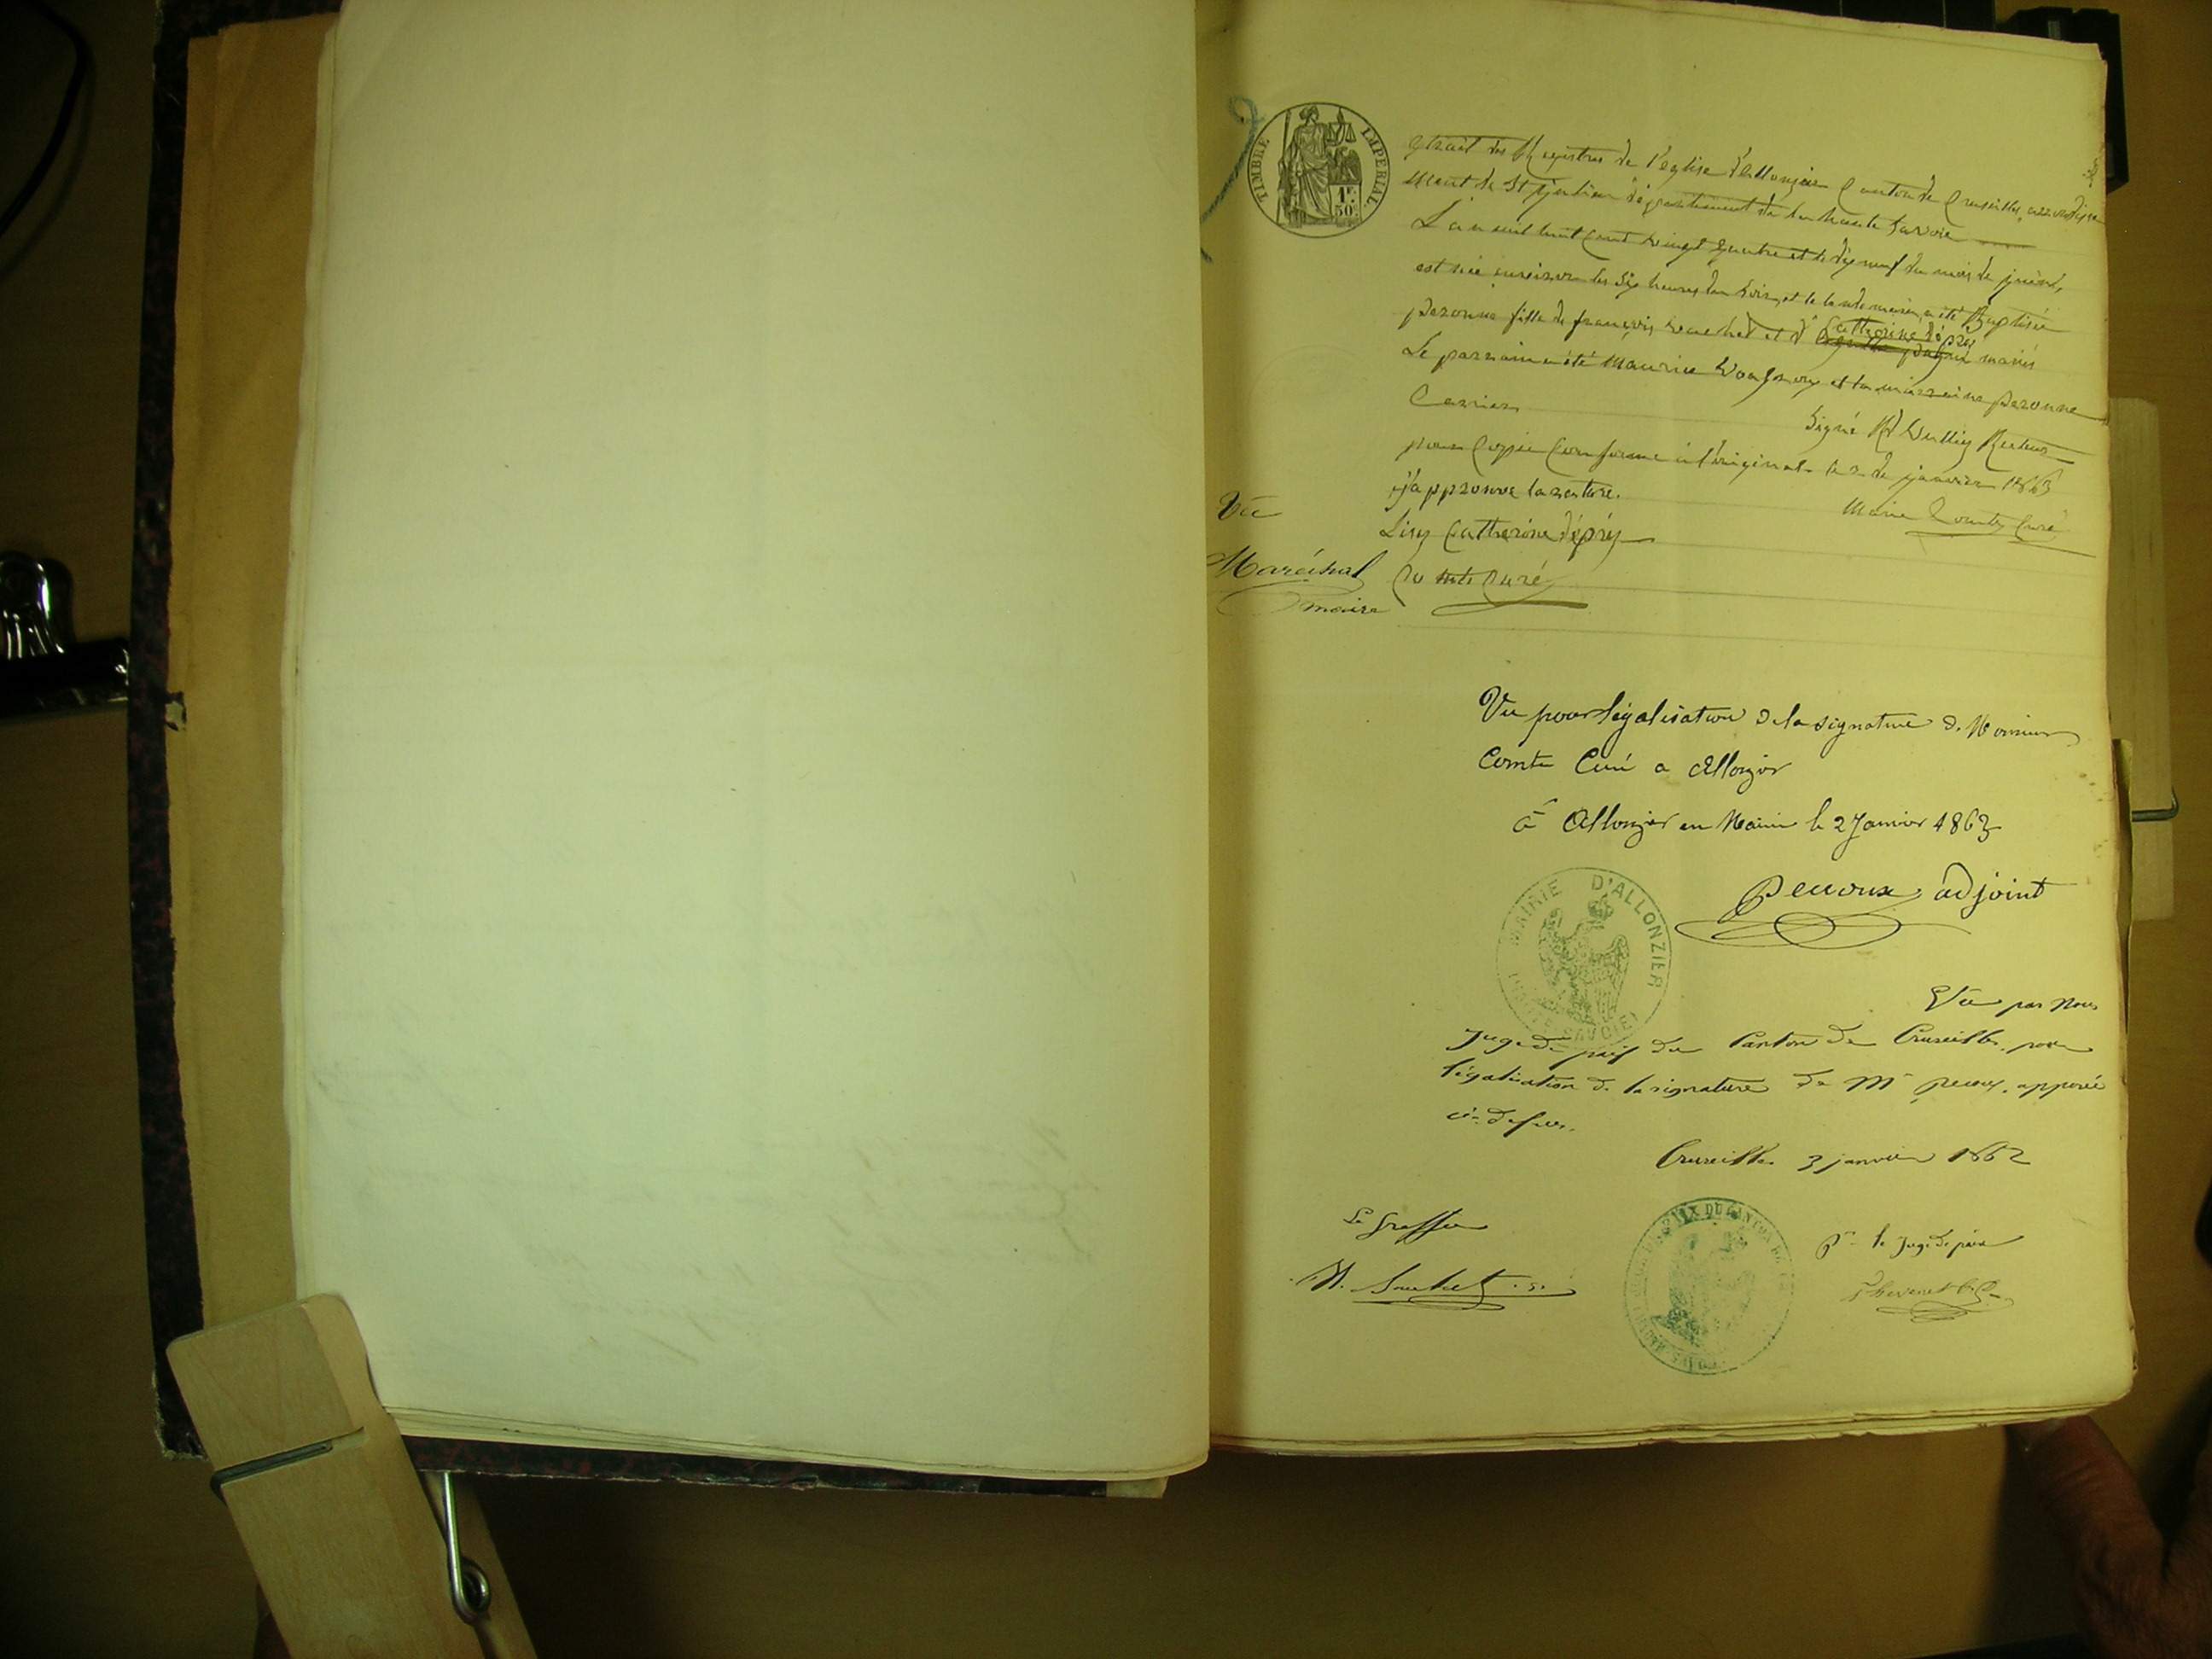 TIMBRE IMPERIAL
1F 50C
extrait des Registres de l'eglise d'allonzier Canton de Cruseilles, arrondisse
ment de St Julien département de la haute Savoie
L'an mil huit Cent vingt quatre et le dix neuf du mois de
est née environ les six heures du soir, et le lendemain a été Baptisée
peronne fille de françois et d' Catherine Déprez mariés
Le parrain a été Maurice et la marraine peronne
Carrier
Signé Rd Recteur
pour Copie Conforme à l'original le 2 de janvier 1863
j'approuve la rature.
Marie Comte Curé
Vu
Lisez Catherine Déprez
Maréchal
Comte Curé
maire
Vu pour légalisation de la signature d. Monsieur
Comte Curé a Allonzier
à Allonzier en Mairie le 2 Janvier 1863
adjoint
MAIRIE D'ALLONZIER
(HTE SAVOIE)
Vu par nous
Juge de paix du Canton de Cruseilles, pour
légalisation de la signature de Mr apposée
ci-dessus.
Cruseilles 3 janvier 1862
Le Greffier
Pr le Juge de paix